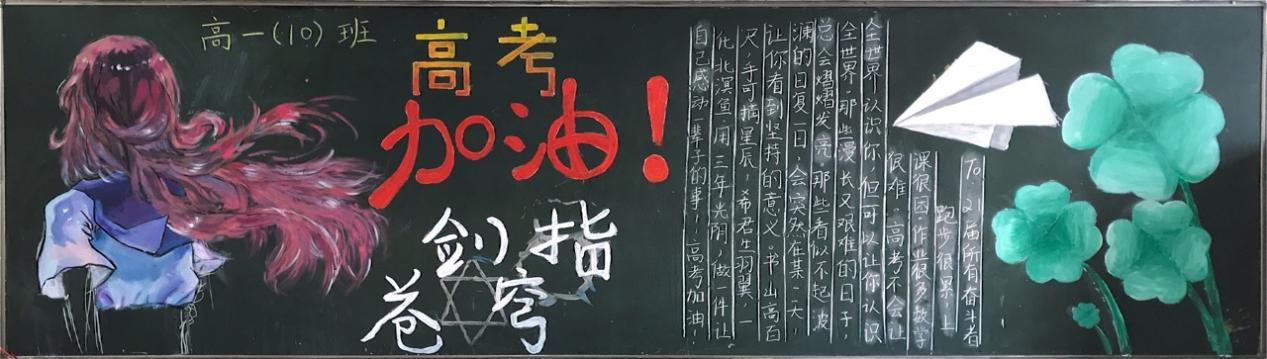 高一(10)班
高考
加油!
剑指
苍穹
To:21届所有奋斗者
跑步很累,上
课很困,作业很多,数学
很难,高考不会让
全世界认识你,但可以让你认识
全世界,那些漫长又艰难的日子,
总会熠熠发亮,那些看似不起波
澜的日复一日,会突然在某一天,
让你看到坚持的意义。书山高百
尺,手可摘星辰,希君生羽翼,一
化北溟鱼,用三年光阴,做一件让
自己感动一辈子的事!高考加油!